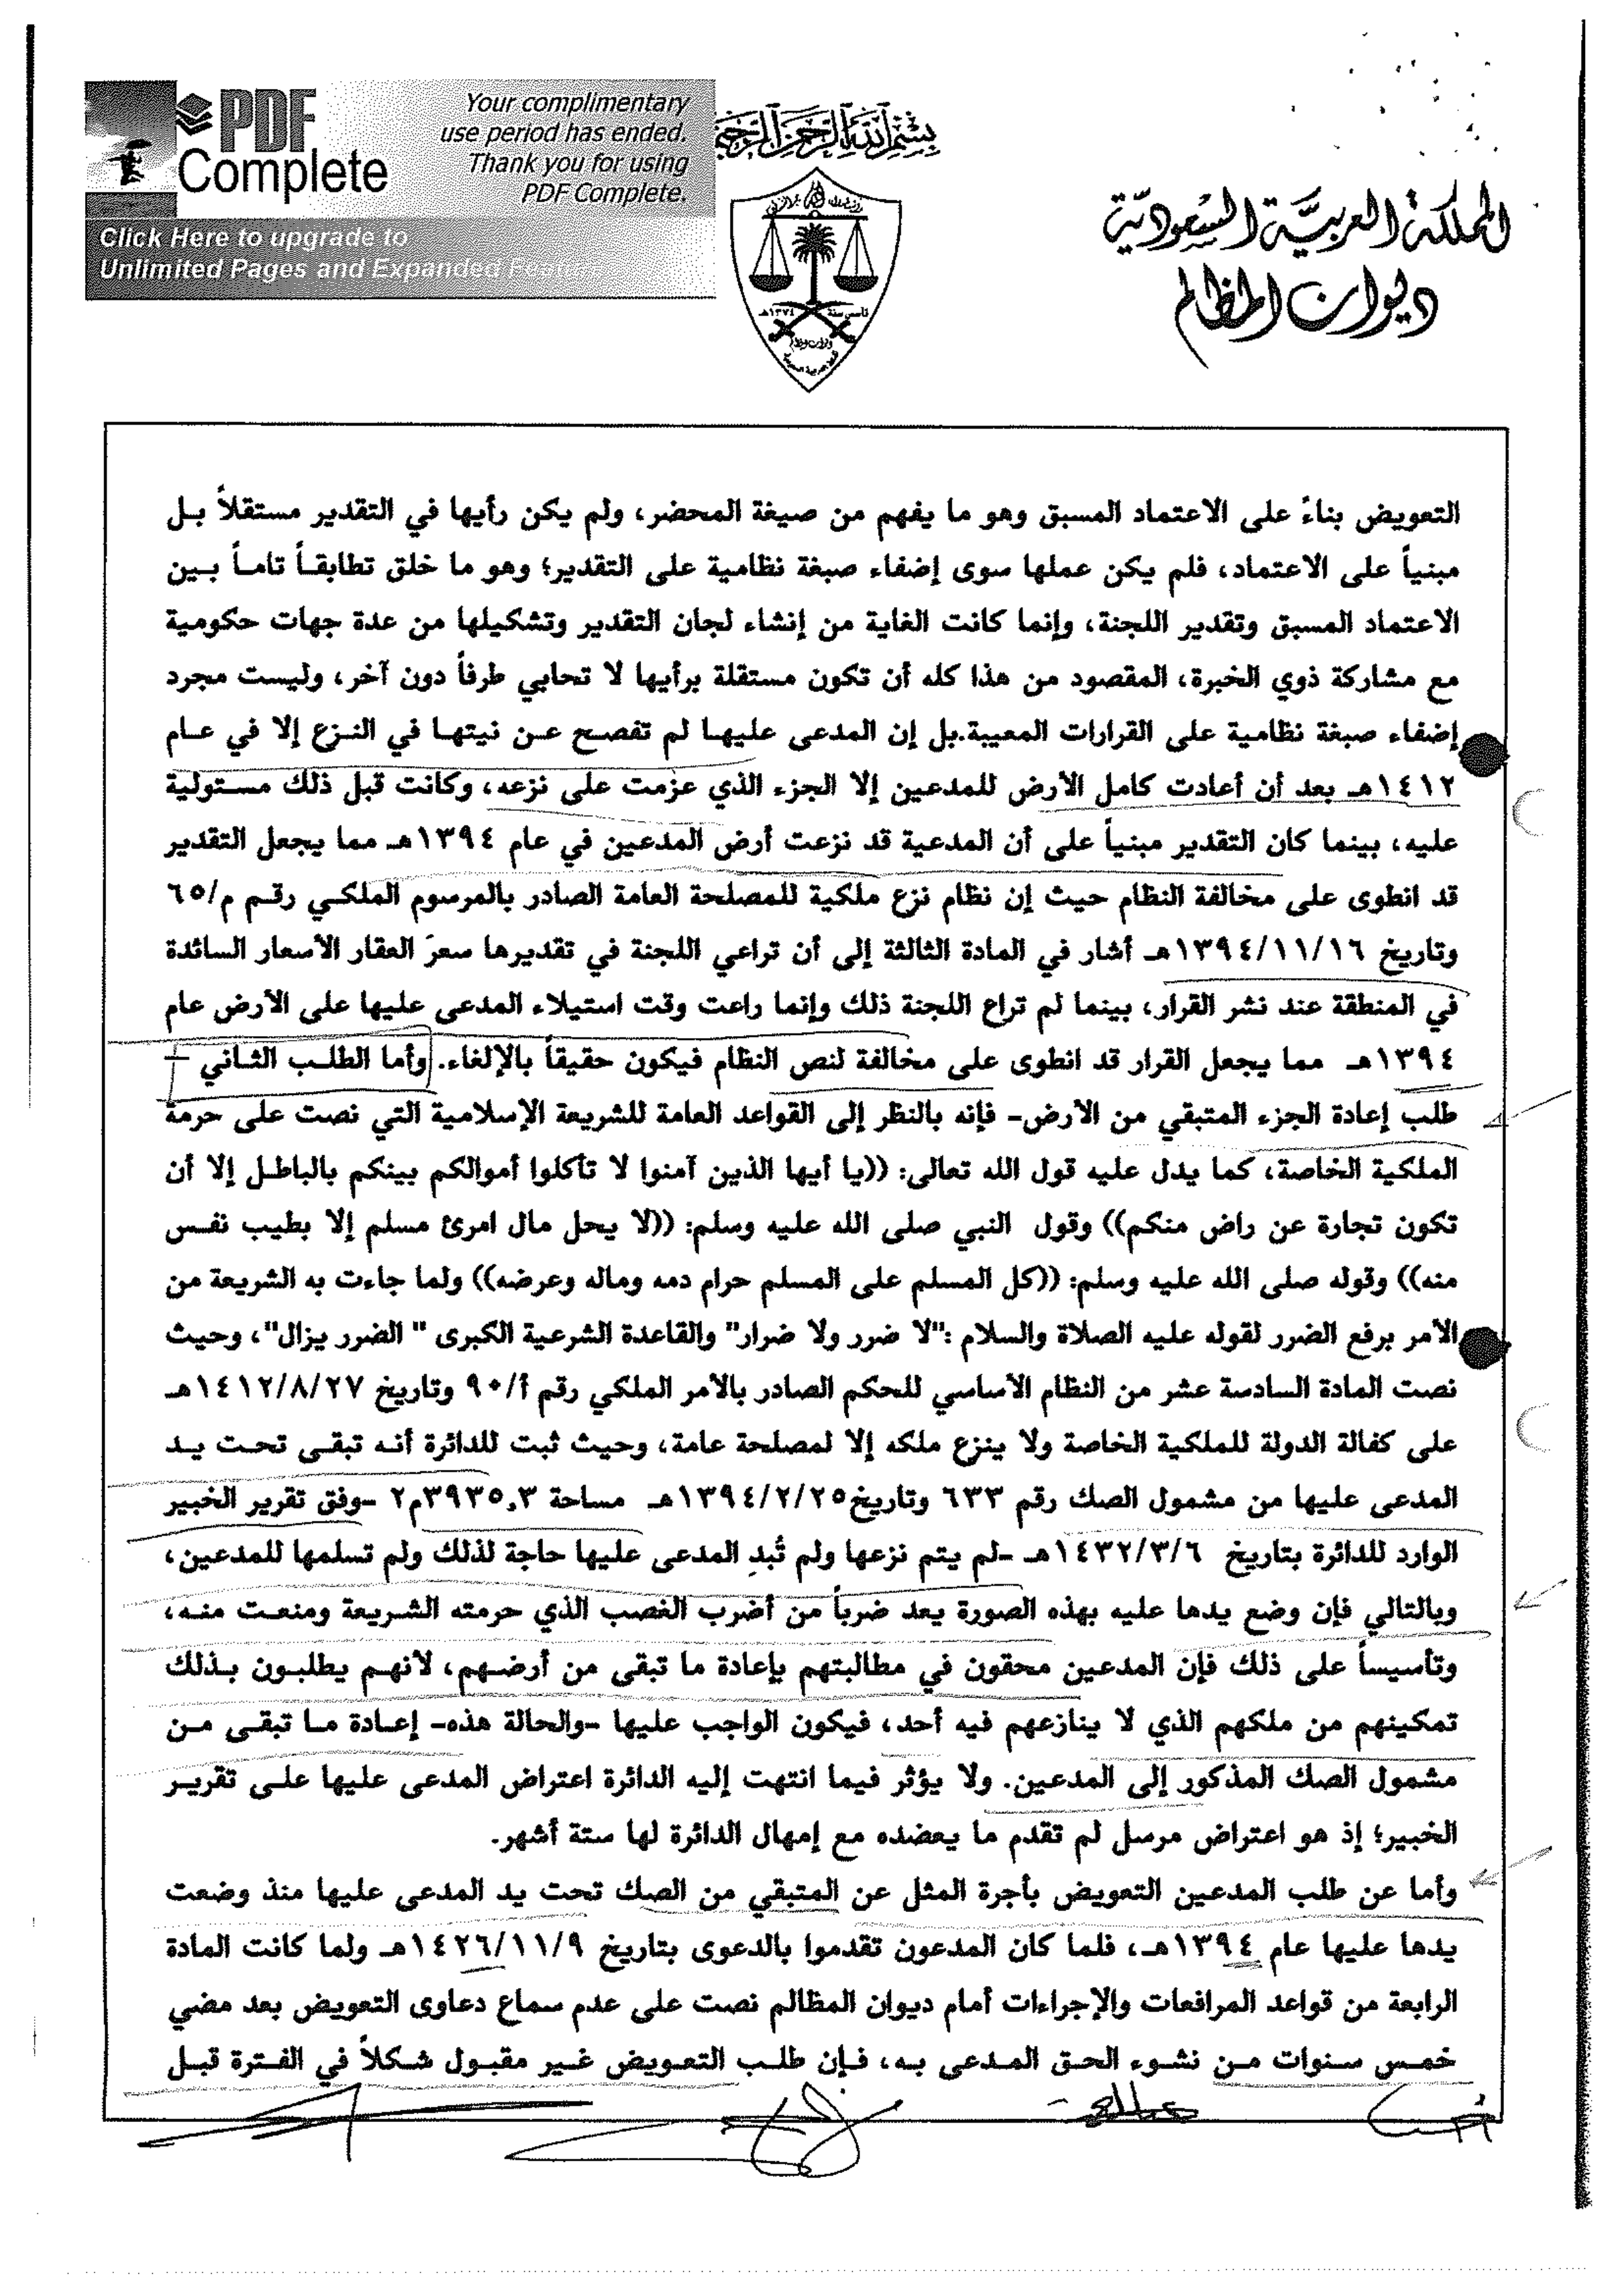 PDF Complete
Your complimentary
use period has ended.
Thank you for using
PDF Complete.
Click Here to upgrade to
Unlimited Pages and Expanded Features
بسم الله الرحمن الرحيم
المملكة العربية السعودية
ديوان المظالم
تأسس سنة ١٣٧٤هـ
التعويض بناءً على الاعتماد المسبق وهو ما يفهم من صيغة المحضر، ولم يكن رأيها في التقدير مستقلاً بل
مبنياً على الاعتماد، فلم يكن عملها سوى إضفاء صبغة نظامية على التقدير؛ وهو ما خلق تطابقاً تاماً بين
الاعتماد المسبق وتقدير اللجنة، وإنما كانت الغاية من إنشاء لجان التقدير وتشكيلها من عدة جهات حكومية
مع مشاركة ذوي الخبرة، المقصود من هذا كله أن تكون مستقلة برأيها لا تحابي طرفاً دون آخر، وليست مجرد
إضفاء صبغة نظامية على القرارات المعيبة.بل إن المدعى عليها لم تفصح عن نيتها في النزع إلا في عام
١٤١٢هـ بعد أن أعادت كامل الأرض للمدعين إلا الجزء الذي عزمت على نزعه، وكانت قبل ذلك مستولية
عليه، بينما كان التقدير مبنياً على أن المدعية قد نزعت أرض المدعين في عام ١٣٩٤هـ مما يجعل التقدير
قد انطوى على مخالفة النظام حيث إن نظام نزع ملكية للمصلحة العامة الصادر بالمرسوم الملكي رقم م/٦٥
وتاريخ ١٣٩٤/١١/١٦هـ أشار في المادة الثالثة إلى أن تراعي اللجنة في تقديرها سعرَ العقار الأسعار السائدة
في المنطقة عند نشر القرار، بينما لم تراع اللجنة ذلك وإنما راعت وقت استيلاء المدعى عليها على الأرض عام
١٣٩٤هـ مما يجعل القرار قد انطوى على مخالفة لنص النظام فيكون حقيقاً بالإلغاء. وأما الطلب الثاني –
طلب إعادة الجزء المتبقي من الأرض- فإنه بالنظر إلى القواعد العامة للشريعة الإسلامية التي نصت على حرمة
الملكية الخاصة، كما يدل عليه قول الله تعالى: ((يا أيها الذين آمنوا لا تأكلوا أموالكم بينكم بالباطل إلا أن
تكون تجارة عن راض منكم)) وقول النبي صلى الله عليه وسلم: ((لا يحل مال امرئ مسلم إلا بطيب نفس
منه)) وقوله صلى الله عليه وسلم: ((كل المسلم على المسلم حرام دمه وماله وعرضه)) ولما جاءت به الشريعة من
الأمر برفع الضرر لقوله عليه الصلاة والسلام :"لا ضرر ولا ضرار" والقاعدة الشرعية الكبرى " الضرر يزال"، وحيث
نصت المادة السادسة عشر من النظام الأساسي للحكم الصادر بالأمر الملكي رقم أ/٩٠ وتاريخ ١٤١٢/٨/٢٧هـ
على كفالة الدولة للملكية الخاصة ولا ينزع ملكه إلا لمصلحة عامة، وحيث ثبت للدائرة أنه تبقى تحت يد
المدعى عليها من مشمول الصك رقم ٦٣٣ وتاريخ١٣٩٤/٢/٢٥هـ مساحة ٣٩٣٥,٣م٢ -وفق تقرير الخبير
الوارد للدائرة بتاريخ ١٤٣٢/٣/٦هـ -لم يتم نزعها ولم تُبدِ المدعى عليها حاجة لذلك ولم تسلمها للمدعين،
وبالتالي فإن وضع يدها عليه بهذه الصورة يعد ضرباً من أضرب الغصب الذي حرمته الشريعة ومنعت منه،
وتأسيساً على ذلك فإن المدعين محقون في مطالبتهم بإعادة ما تبقى من أرضهم، لأنهم يطلبون بذلك
تمكينهم من ملكهم الذي لا ينازعهم فيه أحد، فيكون الواجب عليها -والحالة هذه- إعادة ما تبقى من
مشمول الصك المذكور إلى المدعين. ولا يؤثر فيما انتهت إليه الدائرة اعتراض المدعى عليها على تقرير
الخبير؛ إذ هو اعتراض مرسل لم تقدم ما يعضده مع إمهال الدائرة لها ستة أشهر.
وأما عن طلب المدعين التعويض بأجرة المثل عن المتبقي من الصك تحت يد المدعى عليها منذ وضعت
يدها عليها عام ١٣٩٤هـ، فلما كان المدعون تقدموا بالدعوى بتاريخ ١٤٢٦/١١/٩هـ ولما كانت المادة
الرابعة من قواعد المرافعات والإجراءات أمام ديوان المظالم نصت على عدم سماع دعاوى التعويض بعد مضي
خمس سنوات من نشوء الحق المدعى به، فإن طلب التعويض غير مقبول شكلاً في الفترة قبل